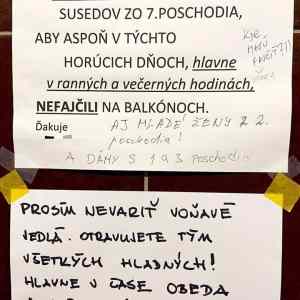 SUSEDOV ZO 7.POSCHODIA,
ABY ASPOŇ V TÝCHTO
HORÚCICH DŇOCH, hlavne
v ranných a večerných hodinách,
NEFAJČILI NA BALKÓNOCH.
KDE
MAJÚ
FAJČIŤ?!!
Ďakuje
AJ MLADÉ ŽENY Z 2.
poschodia!
A DÁMY S 1 A 3 POSCHODIA
PROSÍM NEVARIŤ VOŇAVÉ
JEDLÁ. OTRAVUJETE TÝM
VŠETKÝCH HLADNÝCH!
HLAVNE V ČASE OBEDA